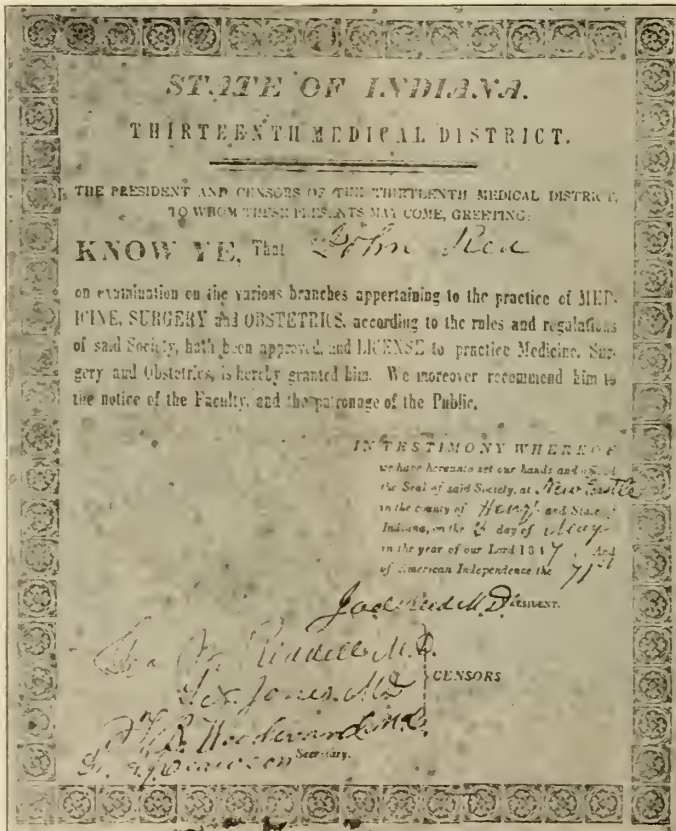 STATE OF INDIANA.
THIRTEENTH MEDICAL DISTRICT.
THE PRESIDENT AND CENSORS OF THE THIRTEENTH MEDICAL DISTRICT,
TO WHOM THESE PRESENTS MAY COME, GREETING:
KNOW YE, That John Rea
on examination on the various branches appertaining to the practice of MED-
ICINE, SURGERY and OBSTETRICS, according to the rules and regulations
of said Society, hath been approved, and LICENSE to practice Medicine, Sur-
gery and Obstetrics, is hereby granted him. We moreover recommend him to
the notice of the Faculty, and the patronage of the Public.
IN TESTIMONY WHEREOF
we have hereunto set our hands and
the Seal of said Society, at New Castle
in the county of Henry and State of
Indiana, on the day of May
in the year of our Lord 1847. And
of American Independence the 71st
Reed M.D. PRESIDENT.
Riddell M.D.
Jones, MD
CENSORS
Woodward M.D.
Secretary.